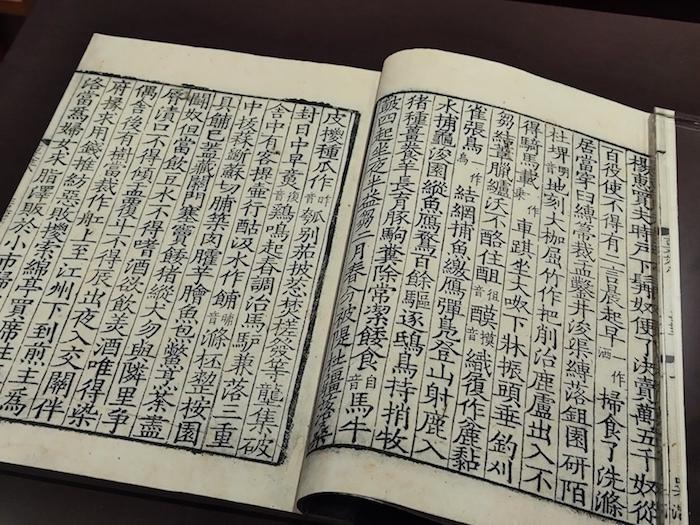 楊惠買夫時戶下髯奴便了決賣萬五千奴從
百役使不得有二言晨起早洒一作掃食了洗滌
居當穿臼縛箒裁盂鑿井浚渠縛落鉏園研陌
杜埤明音地刻大枷屈竹作把削治鹿盧出入不
得騎馬載乘作車踑坐大呶下牀振頭垂釣刈
芻結葦臘纑沃不酪住酤音織履作麤黏
雀張鳥烏作結網捕魚繳鴈彈鳧登山射鹿入
水捕龜浚園縱魚鴈鶩百餘驅逐鴟鳥持捎牧
猪種薑養羊長育豚駒糞除常潔餧食自音馬牛
鼓四起坐夜半益芻二月春分被隄杜壃落桑
皮椶種瓜作昨音瓠別茄披葱焚槎發芋壟集破
封日中早後音鷄鳴起舂調治馬驢兼落三重
舍中有客提壺行酤汲水作餔晡音滌杯整桉園
中拔蒜斷蘇切脯築肉臛芋膾魚炰鼈烹茶盡
具餔已蓋藏關門塞竇餧猪縱犬勿與隣里爭
鬭奴但當飯豆飲水不得嗜酒欲飲美酒唯得染
脣漬口不得傾盂覆斗不得辰出夜入交關伴
偶舍後有樹當裁作船上至江州下到前主為
府掾求用錢推紡惡敗椶索綿亭買席往
洛當為婦女求脂澤販於小市歸